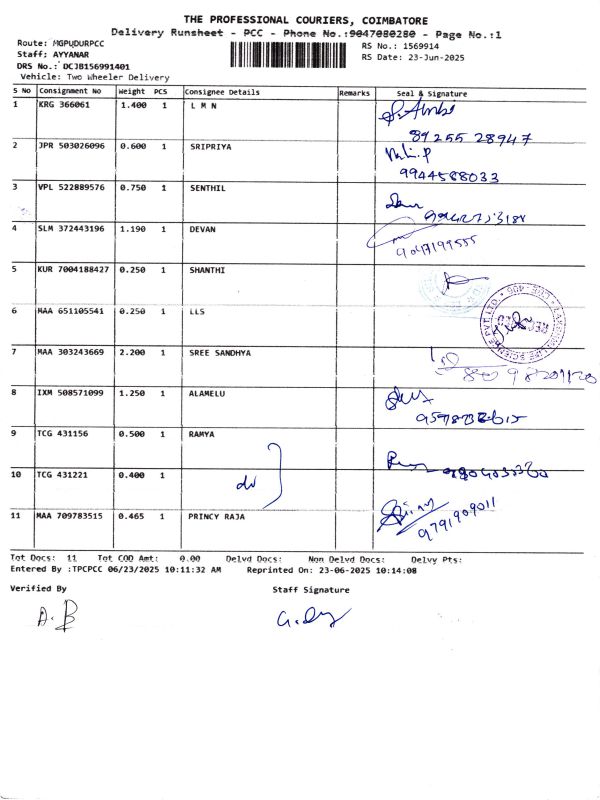 THE PROFESSIONAL COURIERS, COIMBATORE
Delivery Runsheet - PCC - Phone No.:9047080280 - Page No.:1
Route: MGPUDURPCC
RS No.: 1569914
Staff: AYYANAR
RS Date: 23-Jun-2025
DRS No.: DCJB156991401
Vehicle: Two Wheeler Delivery
S No Consignment No Weight PCS Consignee Details Remarks Seal & Signature
1 KRG 366061 1.400 1 L M N
89255 28947
2 JPR 503026096 0.600 1 SRIPRIYA
9944588033
3 VPL 522889576 0.750 1 SENTHIL
4 SLM 372443196 1.190 1 DEVAN
9047199555
5 KUR 7004188427 0.250 1 SHANTHI
6 MAA 651105541 0.250 1 LLS
7 MAA 303243669 2.200 1 SREE SANDHYA
8 IXM 508571099 1.250 1 ALAMELU
9 TCG 431156 0.500 1 RAMYA
10 TCG 431221 0.400 1 do
11 MAA 709783515 0.465 1 PRINCY RAJA
9791909011
Tot Docs: 11 Tot COD Amt: 0.00 Delvd Docs: Non Delvd Docs: Delvy Pts:
Entered By :TPCPCC 06/23/2025 10:11:32 AM Reprinted On: 23-06-2025 10:14:08
Verified By Staff Signature
A. B